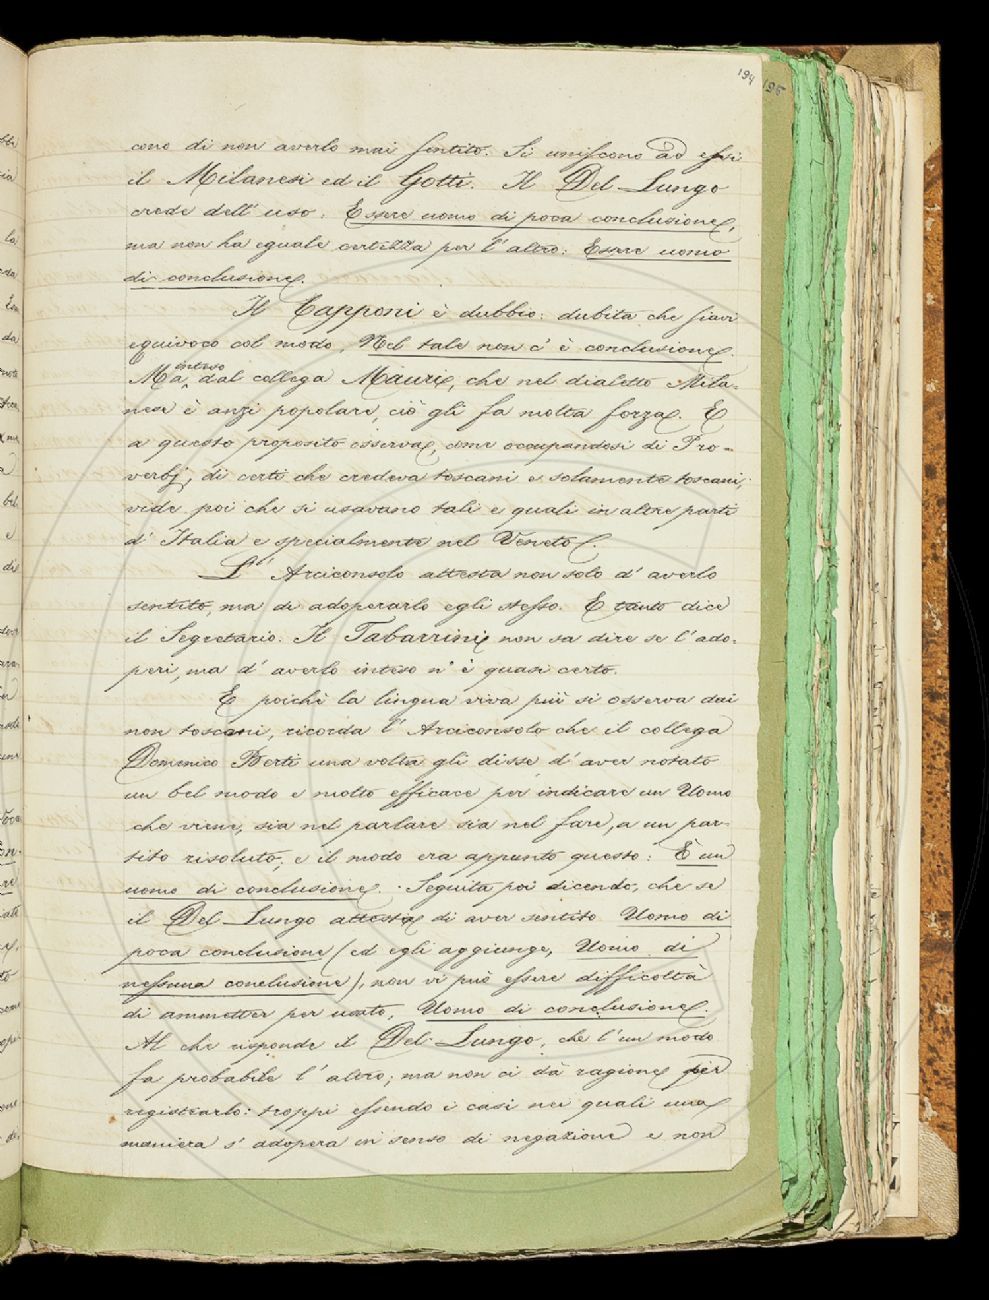 194 195
cono di non averlo mai sentito. Si uniscono ad essi
il Milanesi ed il Gotti. Il Del Lungo
crede dell'uso: Essere uomo di poca conclusione,
ma non ha eguale certezza per l'altro: Essere uomo
di conclusione.
Il Capponi è dubbio: dubita che siavi
equivoco col modo, Nel tale non c'è conclusione.
Ma, inteso dal collega Mauri, che nel dialetto Mila-
nese è anzi popolare, ciò gli fa molta forza. E
a questo proposito osserva, come occupandosi di Pro-
verbj, di certi che credeva toscani e solamente toscani,
vide poi che si usavano tali e quali in altre parti
d'Italia e specialmente nel Veneto.
L'Arciconsolo attesta non solo d'averlo
sentito, ma di adoperarlo egli stesso. E tanto dice
il Segretario. Il Tabarrini non sa dire se l'ado-
peri, ma d'averlo inteso n'è quasi certo.
E poichè la lingua viva più si osserva dai
non toscani, ricorda l'Arciconsolo che il collega
Domenico Berti una volta gli disse d'aver notato
un bel modo e molto efficace per indicare un Uomo
che viene, sia nel parlare sia nel fare, a un par-
tito risoluto, e il modo era appunto questo: È un
uomo di conclusione. Seguita poi dicendo, che se
il Del Lungo attesta di aver sentito Uomo di
poca conclusione (ed egli aggiunge, Uomo di
nessuna conclusione), non vi può essere difficoltà
di ammetter per usato, Uomo di conclusione.
Al che risponde il Del Lungo, che l'un modo
fa probabile l'altro; ma non ci dà ragione per
registrarlo: troppi essendo i casi nei quali una
maniera s'adopera in senso di negazione e non